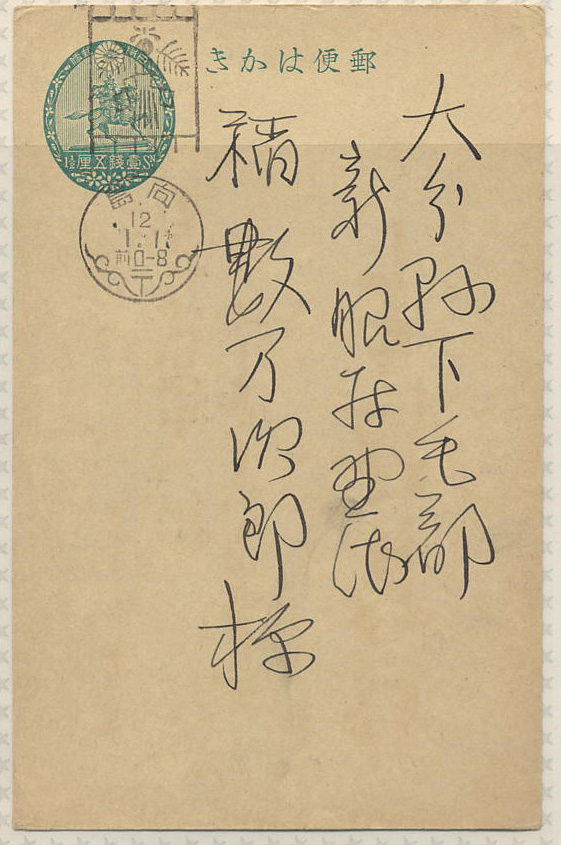 郵便はかき
壹錢五厘
向島
12
1.1
前0-8
大分縣下毛郡
新
數万次郎様